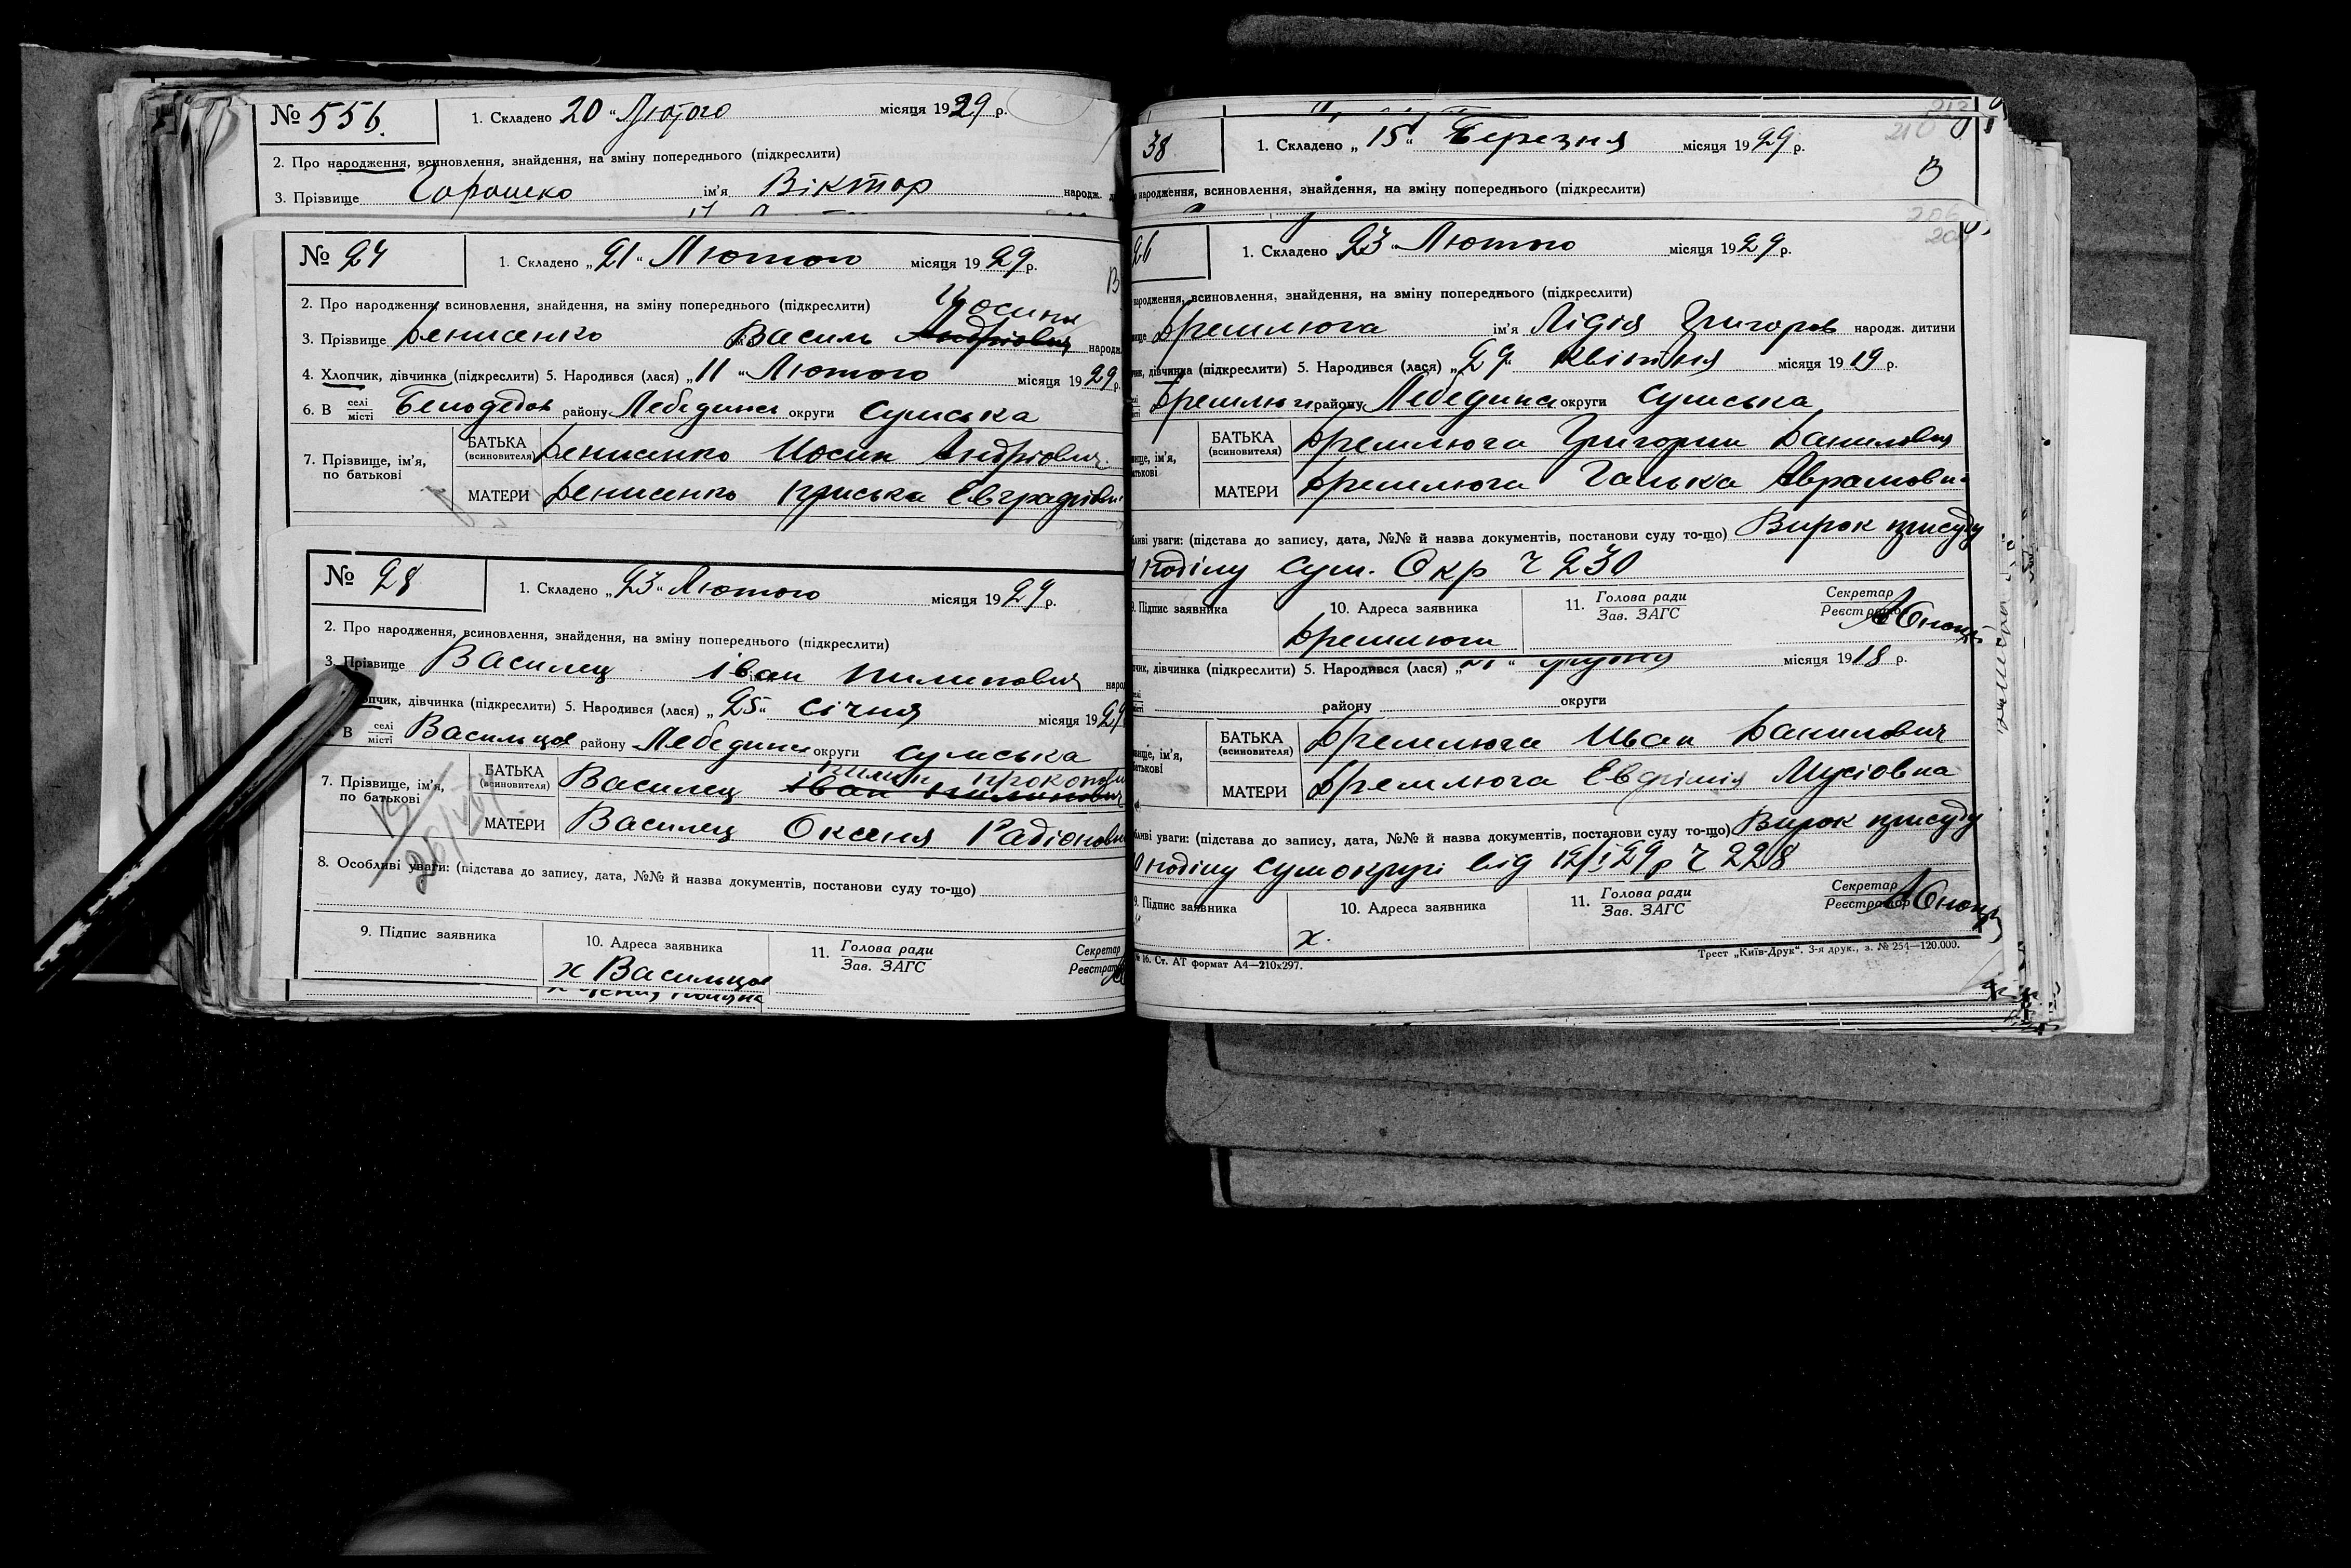 № 556. 1. Складено 20 " Лютого місяця 1929 р.
2. Про народження, всиновлення, знайдення, на зміну попереднього (підкреслити)
3. Прізвище Горошко ім'я Віктор народж.
№ 24 1. Складено „21" Лютого місяця 1929 р.
2. Про народження, всиновлення, знайдення, на зміну попереднього (підкреслити)
3. Прізвище Денисенко Василь Андріович народж.
4. Хлопчик, дівчинка (підкреслити) 5. Народився (лася) „11" Лютого місяця 1929 р.
6. В селі місті району Лебединськ округи Сумська
7. Прізвище, ім'я, по батькові БАТЬКА (всиновителя) Денисенко Иосип Андріович
МАТЕРИ Денисенко Приська Евграфовн
№ 28 1. Складено „23" Лютого місяця 1929 р.
2. Про народження, всиновлення, знайдення, на зміну попереднього (підкреслити)
3. Прізвище Василец іван Пилипович наро
пчик, дівчинка (підкреслити) 5. Народився (лася) „25" Січня місяця 1929
В селі місті Васильцов району Лебединськ округи Сумська
Пилип Прокопов
7. Прізвище, ім'я, по батькові БАТЬКА (всиновителя) Василец іван Пилипович
МАТЕРИ Василец Оксеня Радіоновн
8. Особливі уваги: (підстава до запису, дата, №№ й назва документів, постанови суду то-що)
9. Підпис заявника 10. Адреса заявника 11. Голова ради Зав. ЗАГС Секретар Реєстрат
х Васильцов
38 1. Складено „ 15" Березня місяця 1929 р.
В
народження, всиновлення, знайдення, на зміну попереднього (підкреслити)
206
26 1. Складено 23" Лютого місяця 1929 р.
народження, всиновлення, знайдення, на зміну попереднього (підкреслити)
Дремлюга ім'я Лідія Григоров народж. дитини
чик, дівчинка (підкреслити) 5. Народився (лася) „29" Квітня місяця 1919 р.
Дремлюг району Лебединськ округи Сумська
вище, ім'я, батькові БАТЬКА (всиновителя) Дремлюга Григории Данилович
МАТЕРИ Дремлюга Ганька Аврамовн
бливі уваги: (підстава до запису, дата, №№ й назва документів, постанови суду то-що) Вирок присуду
поділу Сум. Окр Ч 230
9. Підпис заявника 10. Адреса заявника 11. Голова ради Зав. ЗАГС Секретар Реєстратор
Дремлюги
чик, дівчинка (підкреслити) 5. Народився (лася) „ " грудня місяця 1918 р.
району округи
вище, ім'я, батькові БАТЬКА (всиновителя) Дремлюга Иван Данилович
МАТЕРИ Дремлюга Евфімія Мусіовна
бливі уваги: (підстава до запису, дата, №№ й назва документів, постанови суду то-що) Вирок присуду
поділу Сумокруги від 12/І 29 р Ч 228
9. Підпис заявника 10. Адреса заявника 11. Голова ради Зав. ЗАГС Секретар Реєстратор
х.
№ 16. Ст. АТ формат А4—210х297. Трест „Київ-Друк". 3-я друк., з. № 254—120.000.